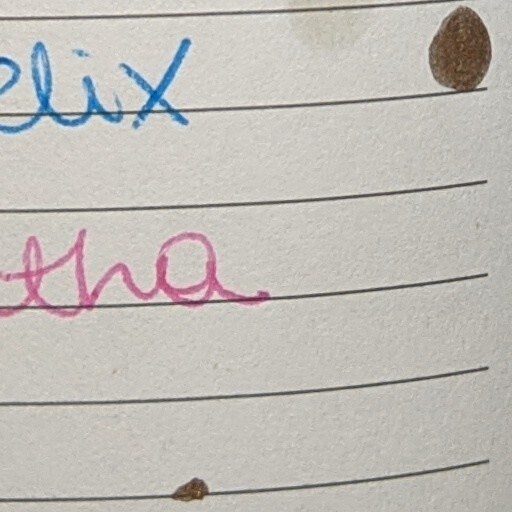 elix
tha